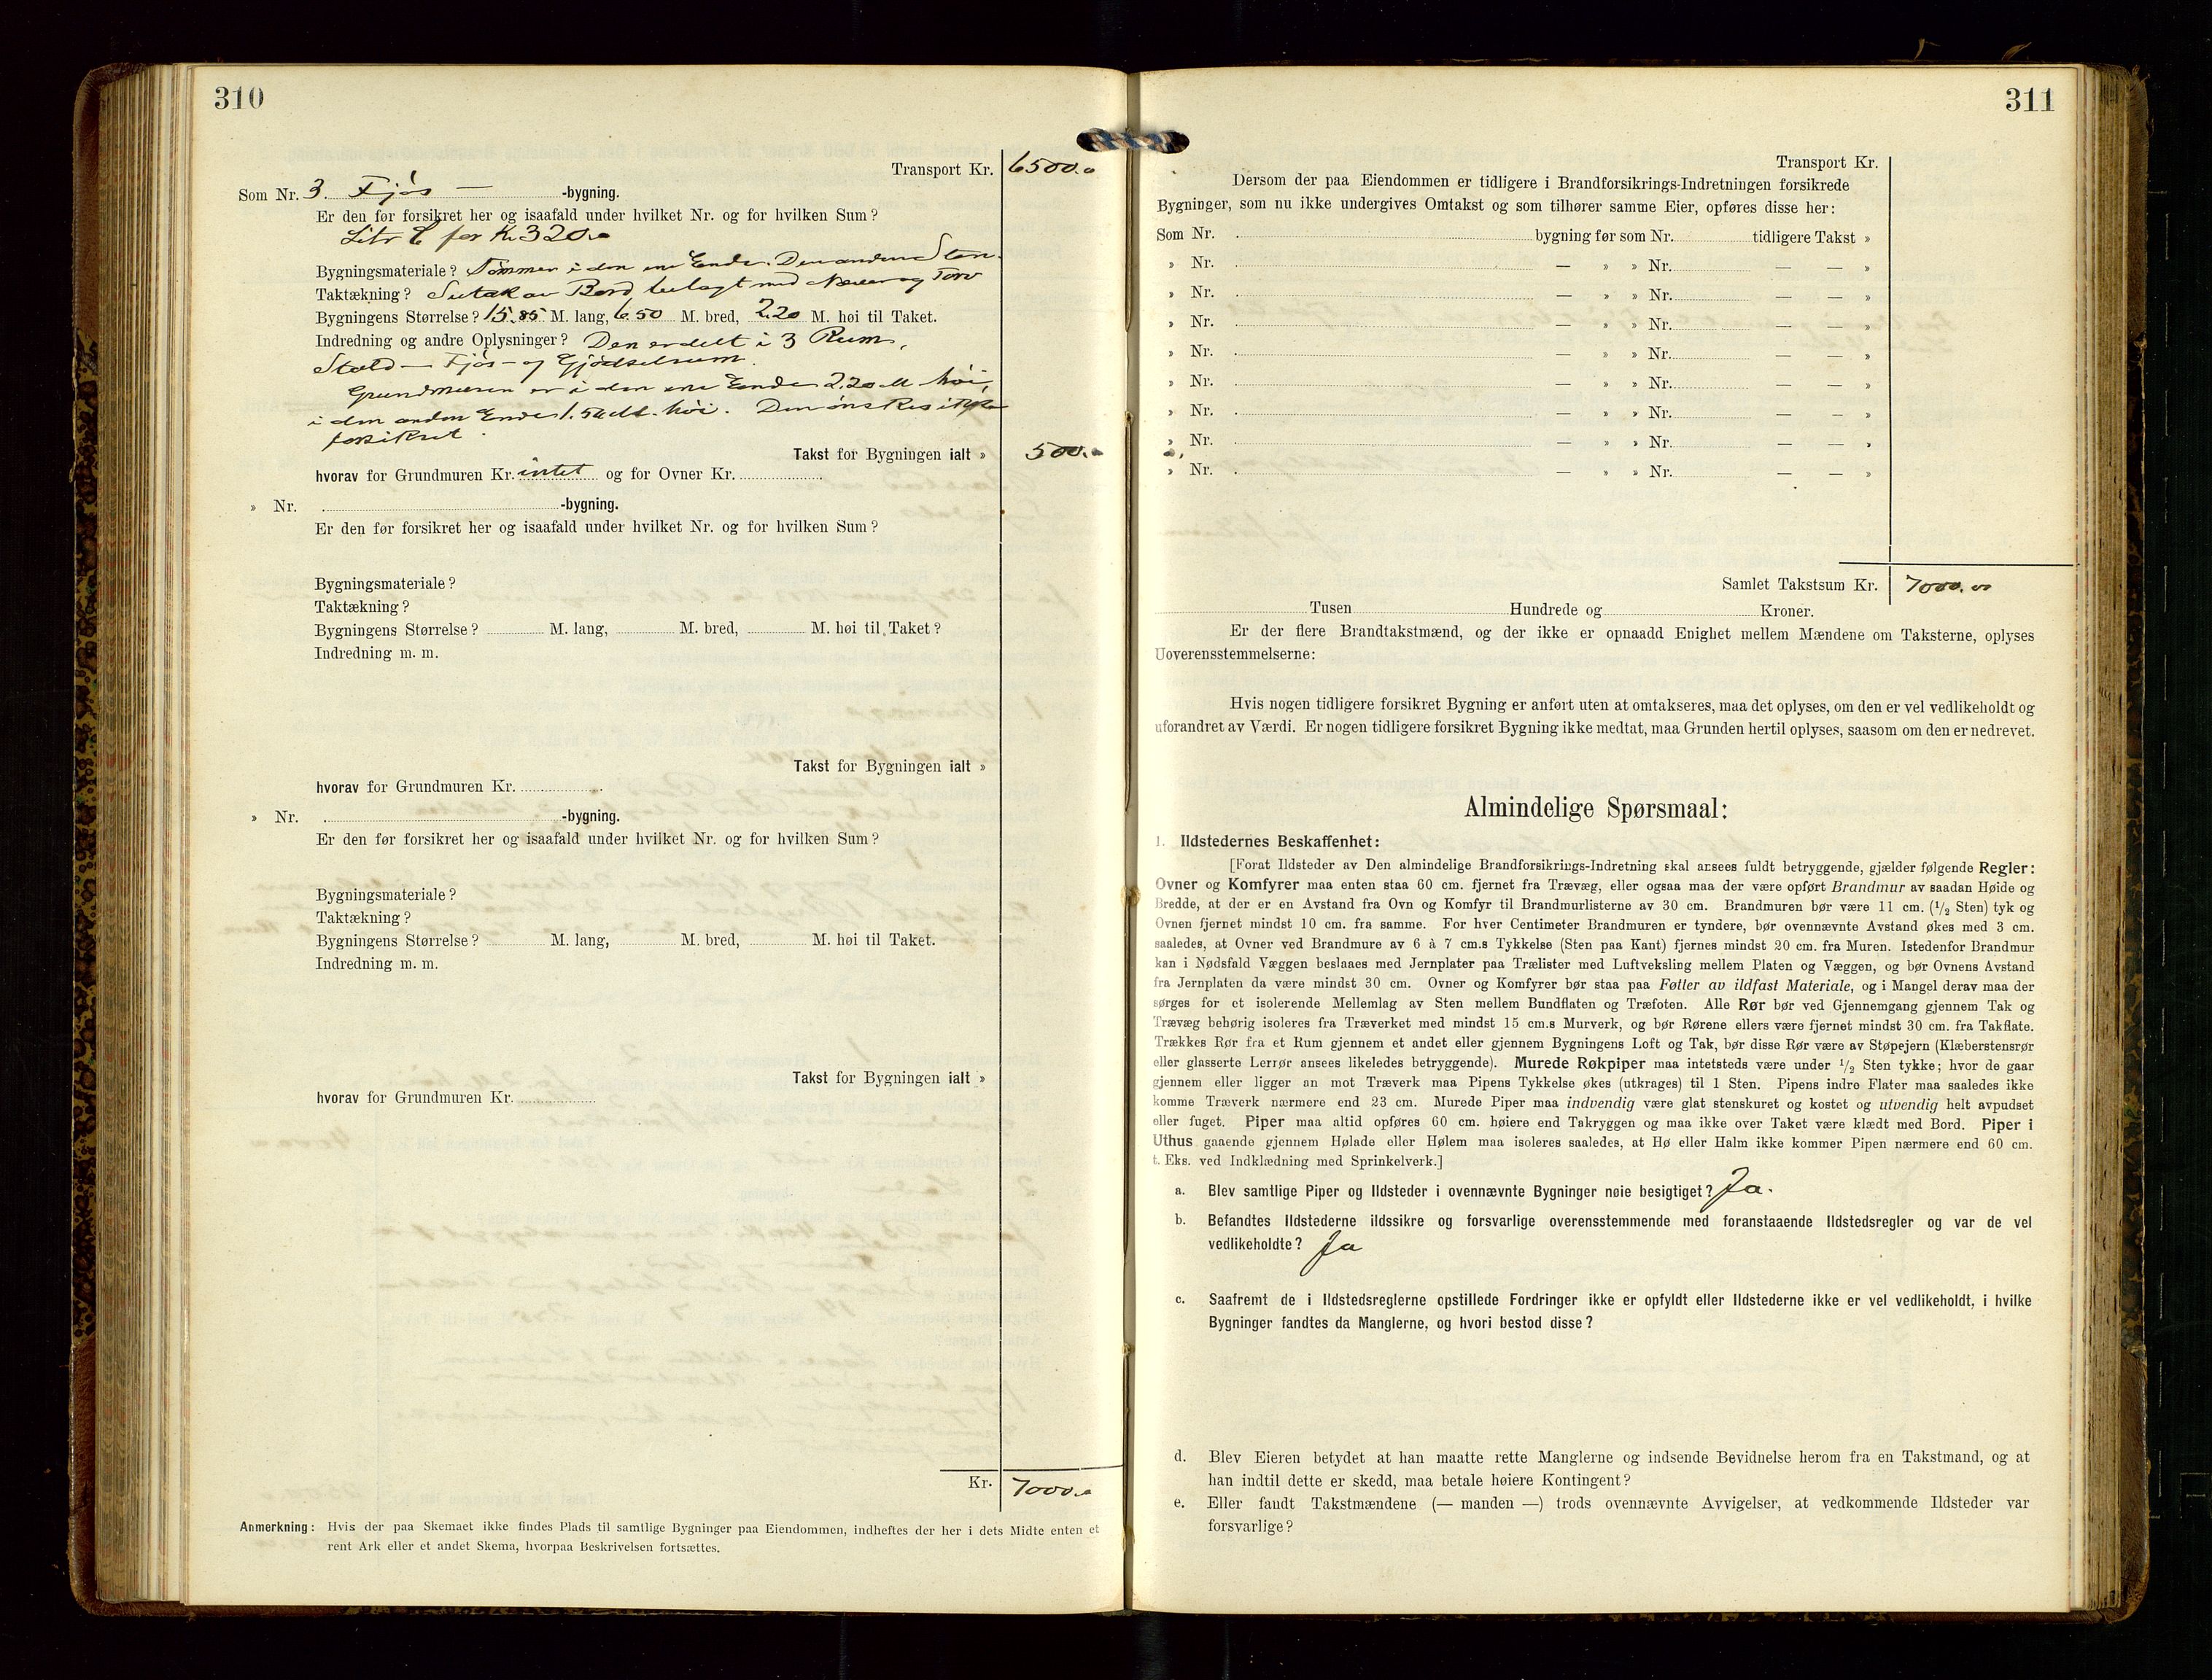 310
Transport Kr. 6500.00
Som Nr. 3. Fjøs — -bygning.
Er den før forsikret her og isaafald under hvilket Nr. og for hvilken Sum?
Litr C for Kr 320.00
Bygningsmateriale? Tømmer i den ene Ende. Den anden Sten.
Taktækning? Sutak av Bord belagt med Næver og Torv
Bygningens Størrelse? 15.85 M. lang, 6.50 M. bred, 2.20 M. høi til Taket.
Indredning og andre Oplysninger? Den er delt i 3 Rum,
Stald — Fjøs — og Gjødselrum.
Grundmuren er i den ene Ende 2.20 M høi,
i den anden Ende 1.50 M. høi. Den ønskes ikke
forsikret.
Takst for Bygningen ialt » 500.00
hvorav for Grundmuren Kr. intet og for Ovner Kr.
» Nr. -bygning.
Er den før forsikret her og isaafald under hvilket Nr. og for hvilken Sum?
Bygningsmateriale?
Taktækning?
Bygningens Størrelse? M. lang, M. bred, M. høi til Taket?
Indredning m. m.
Takst for Bygningen ialt »
hvorav for Grundmuren Kr.
» Nr. -bygning.
Er den før forsikret her og isaafald under hvilket Nr. og for hvilken Sum?
Bygningsmateriale?
Taktækning?
Bygningens Størrelse? M. lang, M. bred, M. høi til Taket.
Indredning m. m.
Takst for Bygningen ialt »
hvorav for Grundmuren Kr.
Kr. 7000.00
Anmerkning: Hvis der paa Skemaet ikke findes Plads til samtlige Bygninger paa Eiendommen, indheftes der her i dets Midte enten et
rent Ark eller et andet Skema, hvorpaa Beskrivelsen fortsættes.
311
Transport Kr.
Dersom der paa Eiendommen er tidligere i Brandforsikrings-Indretningen forsikrede
Bygninger, som nu ikke undergives Omtakst og som tilhører samme Eier, opføres disse her:
Som Nr. bygning før som Nr. tidligere Takst »
» Nr. — » » Nr. — — »
» Nr. — » » Nr. — — »
» Nr. — » » Nr. — — »
» Nr. — » » Nr. — — »
» Nr. — » » Nr. — — »
» Nr. — » » Nr. — — »
» Nr. — » » Nr. — — »
» Nr. — » » Nr. — — »
Samlet Takstsum Kr. 7000.00
Tusen Hundrede og Kroner.
Er der flere Brandtakstmænd, og der ikke er opnaadd Enighet mellem Mændene om Taksterne, oplyses
Uoverensstemmelserne:
Hvis nogen tidligere forsikret Bygning er anført uten at omtakseres, maa det oplyses, om den er vel vedlikeholdt og
uforandret av Værdi. Er nogen tidligere forsikret Bygning ikke medtat, maa Grunden hertil oplyses, saasom om den er nedrevet.
Almindelige Spørsmaal:
1. Ildstedernes Beskaffenhet:
[Forat Ildsteder av Den almindelige Brandforsikrings-Indretning skal ansees fuldt betryggende, gjælder følgende Regler:
Ovner og Komfyrer maa enten staa 60 cm. fjernet fra Trævæg, eller ogsaa maa der være opført Brandmur av saadan Høide og
Bredde, at der er en Avstand fra Ovn og Komfyr til Brandmurlisterne av 30 cm. Brandmuren bør være 11 cm. (1/2 Sten) tyk og
Ovnen fjernet mindst 10 cm. fra samme. For hver Centimeter Brandmuren er tyndere, bør ovennævnte Avstand økes med 3 cm.
saaledes, at Ovner ved Brandmure av 6 à 7 cm.s Tykkelse (Sten paa Kant) fjernes mindst 20 cm. fra Muren. Istedenfor Brandmur
kan i Nødsfald Væggen beslaaes med Jernplater paa Trælister med Luftveksling mellem Platen og Væggen, og bør Ovnens Avstand
fra Jernplaten da være mindst 30 cm. Ovner og Komfyrer bør staa paa Føtter av ildfast Materiale, og i Mangel derav maa der
sørges for et isolerende Mellemlag av Sten mellem Bundflaten og Træfoten. Alle Rør bør ved Gjennemgang gjennem Tak og
Trævæg behørig isoleres fra Træverket med mindst 15 cm.s Murverk, og bør Rørene ellers være fjernet mindst 30 cm. fra Takflate.
Trækkes Rør fra et Rum gjennem et andet eller gjennem Bygningens Loft og Tak, bør disse Rør være av Støpejern (Klæberstensrør
eller glasserte Lerrør ansees likeledes betryggende). Murede Røkpiper maa intetsteds være under 1/2 Sten tykke; hvor de gaar
gjennem eller ligger an mot Træverk maa Pipens Tykkelse økes (utkrages) til 1 Sten. Pipens indre Flater maa saaledes ikke
komme Træverk nærmere end 23 cm. Murede Piper maa indvendig være glat stenskuret og kostet og utvendig helt avpudset
eller fuget. Piper maa altid opføres 60 cm. høiere end Takryggen og maa ikke over Taket være klædt med Bord. Piper i
Uthus gaaende gjennem Hølade eller Hølem maa isoleres saaledes, at Hø eller Halm ikke kommer Pipen nærmere end 60 cm.
t. Eks. ved Indklædning med Sprinkelverk.]
a. Blev samtlige Piper og Ildsteder i ovennævnte Bygninger nøie besigtiget? Ja.
b. Befandtes Ildstederne ildssikre og forsvarlige overensstemmende med foranstaaende Ildstedsregler og var de vel
vedlikeholdte? Ja
c. Saafremt de i Ildstedsreglerne opstillede Fordringer ikke er opfyldt eller Ildstederne ikke er vel vedlikeholdt, i hvilke
Bygninger fandtes da Manglerne, og hvori bestod disse?
d. Blev Eieren betydet at han maatte rette Manglerne og indsende Bevidnelse herom fra en Takstmand, og at
han indtil dette er skedd, maa betale høiere Kontingent?
e. Eller fandt Takstmændene (— manden —) trods ovennævnte Avvigelser, at vedkommende Ildsteder var
forsvarlige?